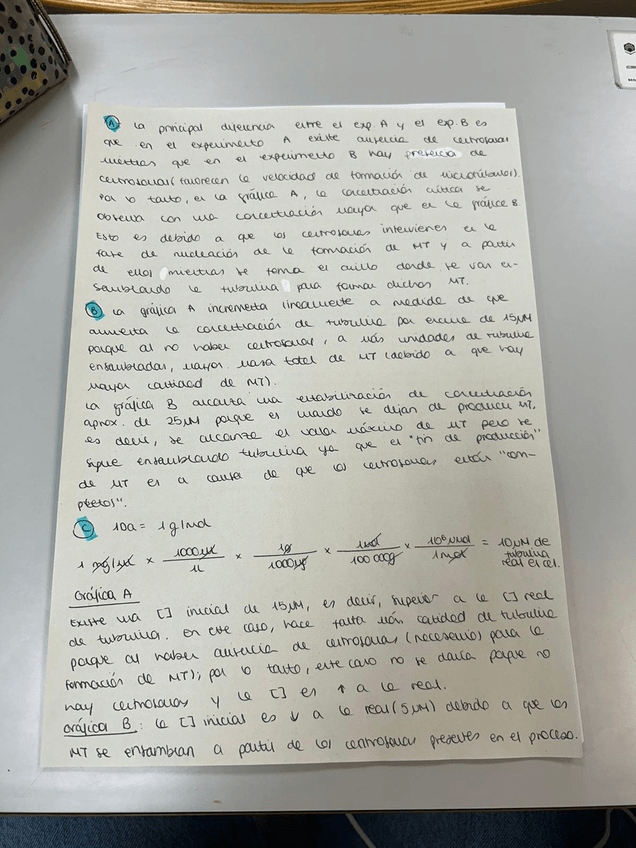 A La principal diferencia entre el exp. A y el exp. B es
que en el experimento A existe ausencia de centrosomas
mientras que en el experimento B hay presencia de
centrosomas (favorecen la velocidad de formación de microtúbulos).
Por lo tanto, en la gráfica A, la concentración crítica se
observa con una concentración mayor que en la gráfica B.
Esto es debido a que los centrosomas intervienen en la
fase de nucleación de la formación de MT y a partir
de ellos mientras se forma el anillo donde se van en-
samblando la tubulina para formar dichos MT.
B La gráfica A incrementa linealmente a medida de que
aumenta la concentración de tubulina por encima de 15μM
porque al no haber centrosomas, a más unidades de tubulina
ensambladas, mayor masa total de MT (debido a que hay
mayor cantidad de MT).
La gráfica B alcanza una estabilización de concentración
aprox. de 25μM porque es cuando se dejan de producir MT,
es decir, se alcanza el valor máximo de MT pero se
sigue ensamblando tubulina ya que el "fin de producción"
de MT es a causa de que los centrosomas están "com-
pletos".
C 1Da = 1 g/mol
1 mg/mL × 1000 mL / 1L × 1g / 1000mg × 1mol / 100 000g × 10⁶ μmol / 1mol = 10μM de
tubulina
real en cél.
Gráfica A
Existe una [] inicial de 15μM, es decir, superior a la [] real
de tubulina. En este caso, hace falta más cantidad de tubulina
porque al haber ausencia de centrosomas (necesario) para la
formación de MT); por lo tanto, este caso no se daría porque no
hay centrosomas y la [] es ↑ a la real.
Gráfica B: la [] inicial es ↓ a la real (5μM) debido a que los
MT se ensamblan a partir de los centrosomas presentes en el proceso.